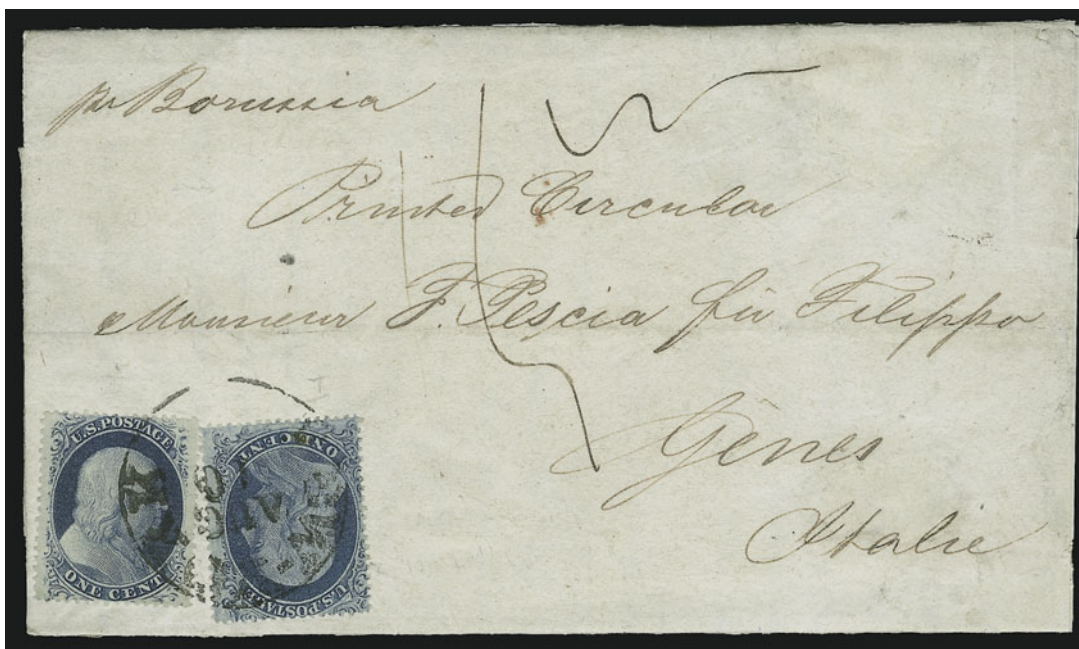 pr Borussia
Printed Circular
Monsieur F. Pescia fû Filippo
Gênes
Italie
U.S. POSTAGE
ONE CENT
ONE CENT
U.S. POSTAGE